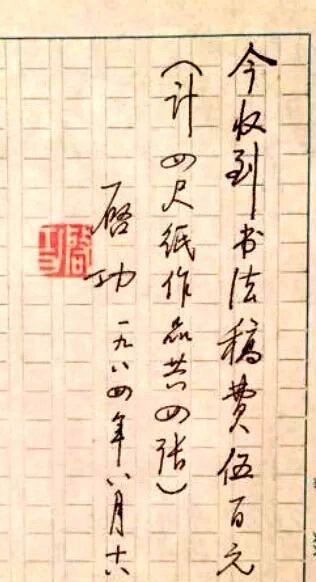 今收到书法稿费伍百元
(计四尺纸作品共四张)
启功 一九八四年八月十六
启功